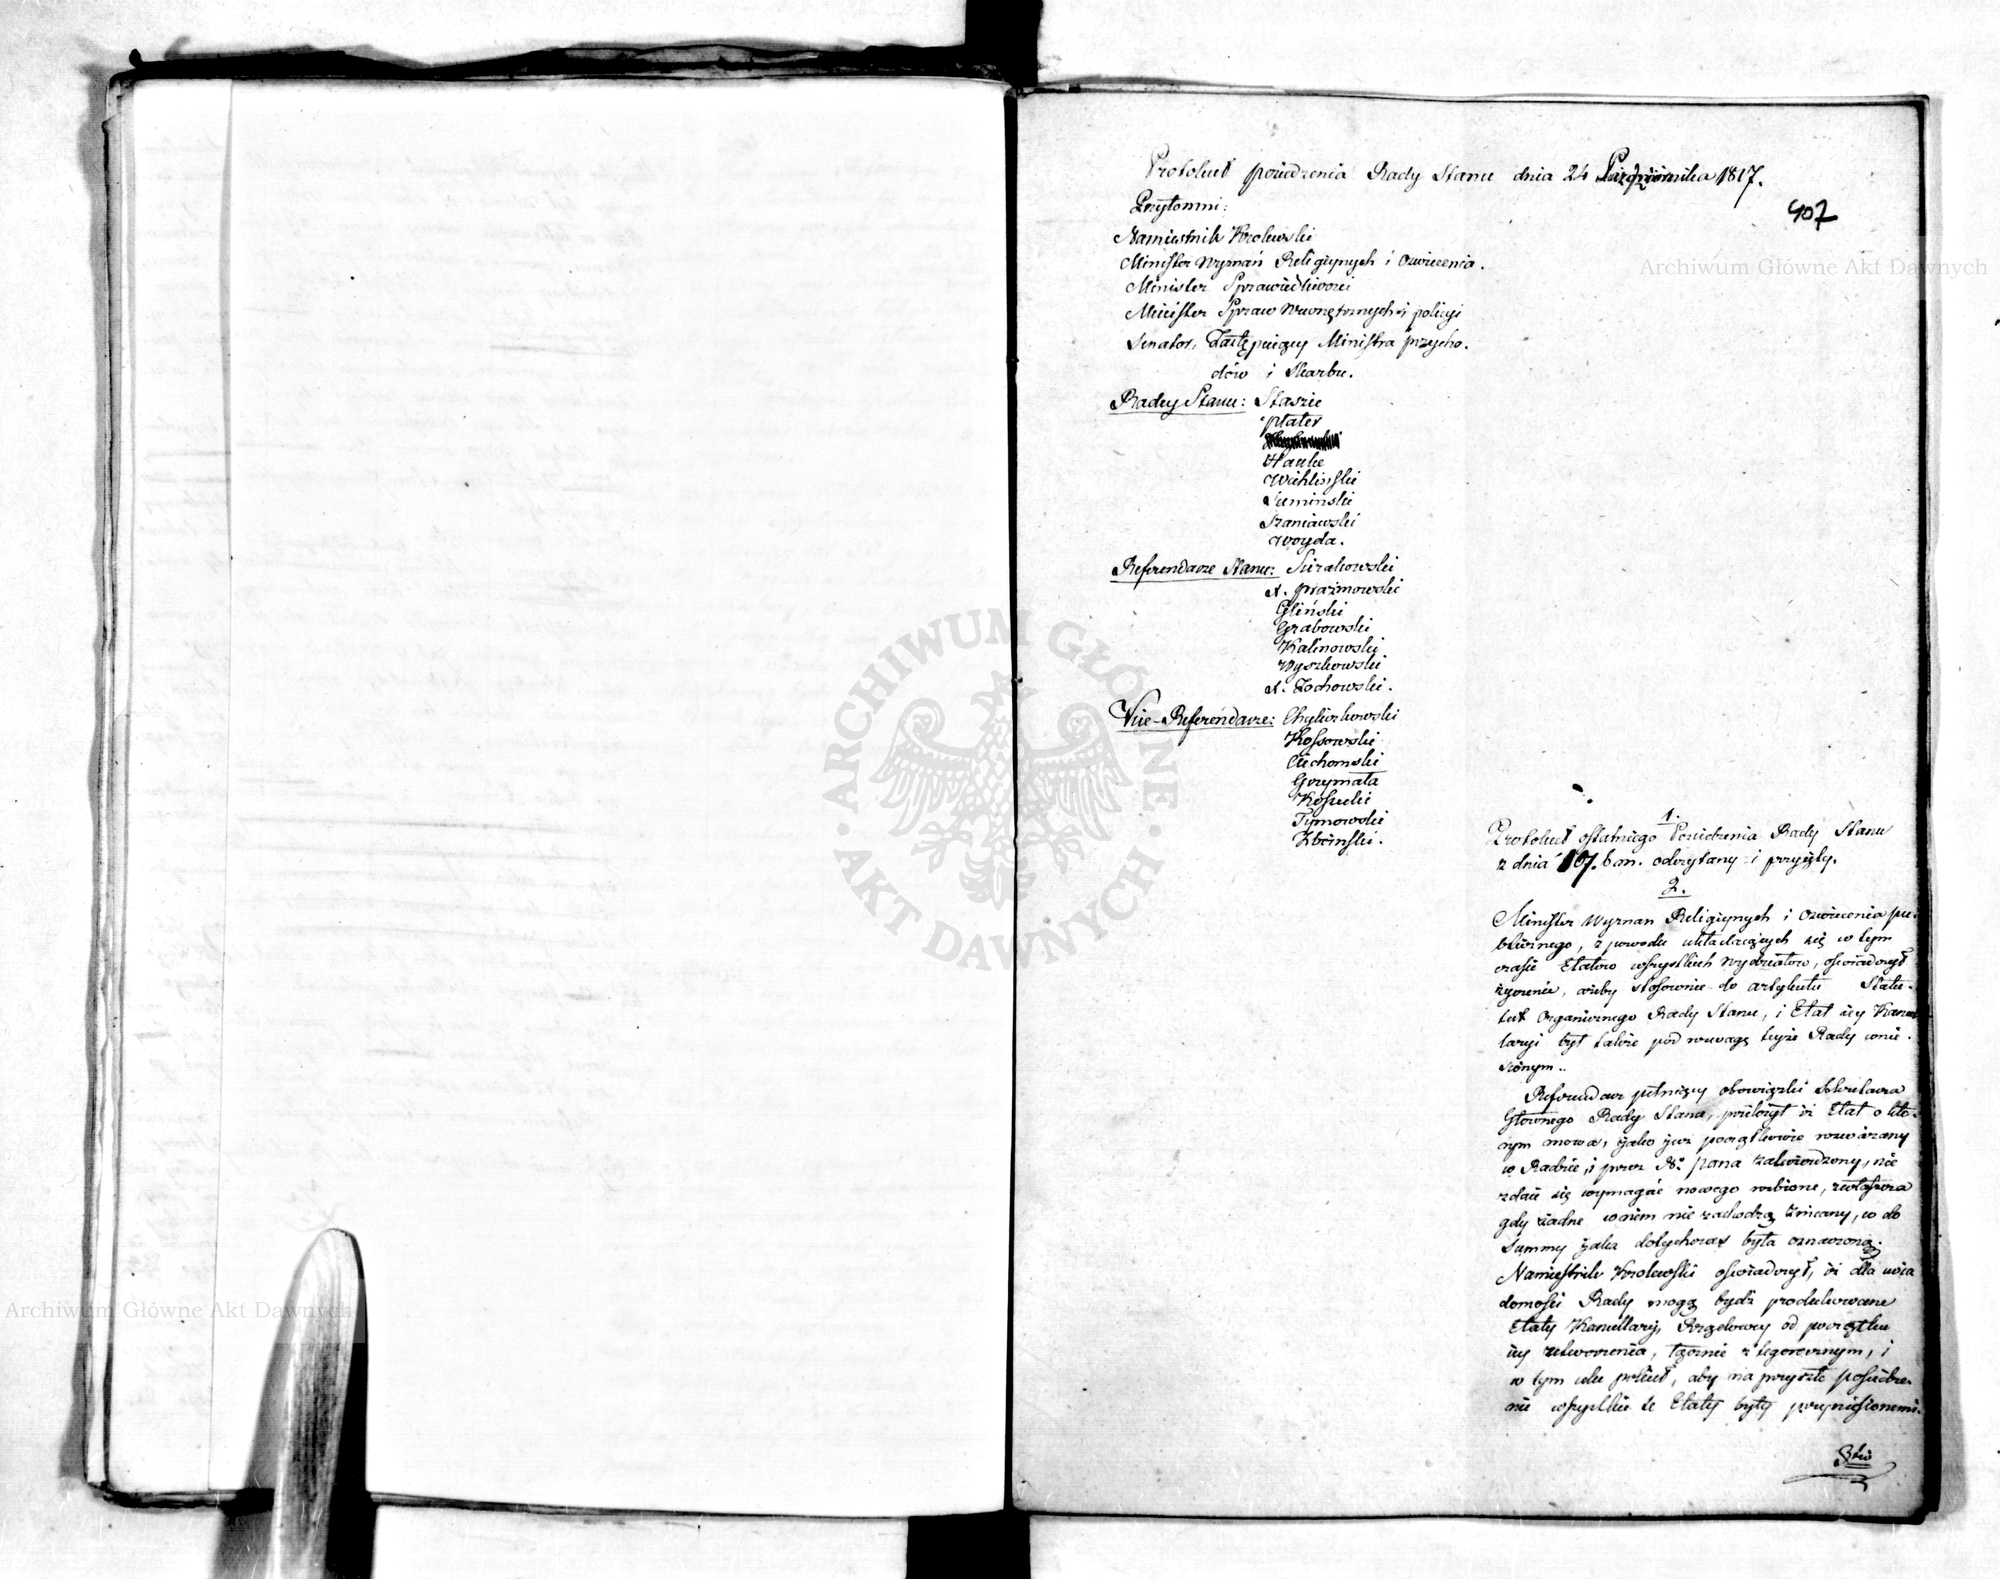 Protokuł posiedzenia Rady Stanu dnia 24 Października 1817.
407
Przytomni:
Namiestnik Krolewski
Minister Wyznań Religijnych i Oswiecenia.
Minister Sprawiedliwosci
Minister Spraw Wewnętrznych i policyi
Senator, Zastępuiący Ministra przycho-
dów i Skarbu.
Radcy Stanu: Staszic
Plater
Hauke
Wichlinski
Suminski
Szaniawski
Woyda.
Referendarze Stanu: Sierakowski
X. Prazmowski
Gliński
Grabowski
Kalinowski
Wyszkowski
X. Żochowski.
Vice-Referendarze: Chyliczkowski
Kossowski
Ciechomski
Grzymała
Kossecki
Tymowski
Zboinski.
1.
Protokuł ostatniego Posiedzenia Rady Stanu
z dnia 17. b.m. odczytany i przyięty.
2.
Minister Wyznan Religijnych i Oswiecenia pu-
blicznego, z powodu układaiących się w tym
czasie Etatow wszystkich Wydziałow, oswiadczył
życzenie, ażeby stosownie do artykułu Statu-
tut Organicznego Rady Stanu, i Etat iey Kancel
laryi był także pod rozwagę teyże Rady wnie-
sionym.
Referendarz pełniący obowiązki Sekretarza
Głownego Rady Stanu, przełożył iż Etat o któ-
rym mowa, iako iuż początkowie rozważany
w Radzie, i przez N. Pana zatwierdzony, nie
zdaie się wymagać nowego , zwłaszcza
gdy żadne w nim nie zachodzą zmiany, co do
Summy iaka dotychczas była oznaczoną.
Namiestnik Krolewski oswiadczył, iż dla wia
domosci Rady mogą bydź produkowane
Etaty Kancellaryi, Rządowey od początku
iey utworzenia, łącznie z tegorocznym, i
w tym celu polecił, aby na przyszłe posiedze-
nie wszystkie te Etaty były przyniesionemi.
Archiwum Główne Akt Dawnych
Archiwum Główne Akt Dawnych
ARCHIWUM GŁÓWNE AKT DAWNYCH